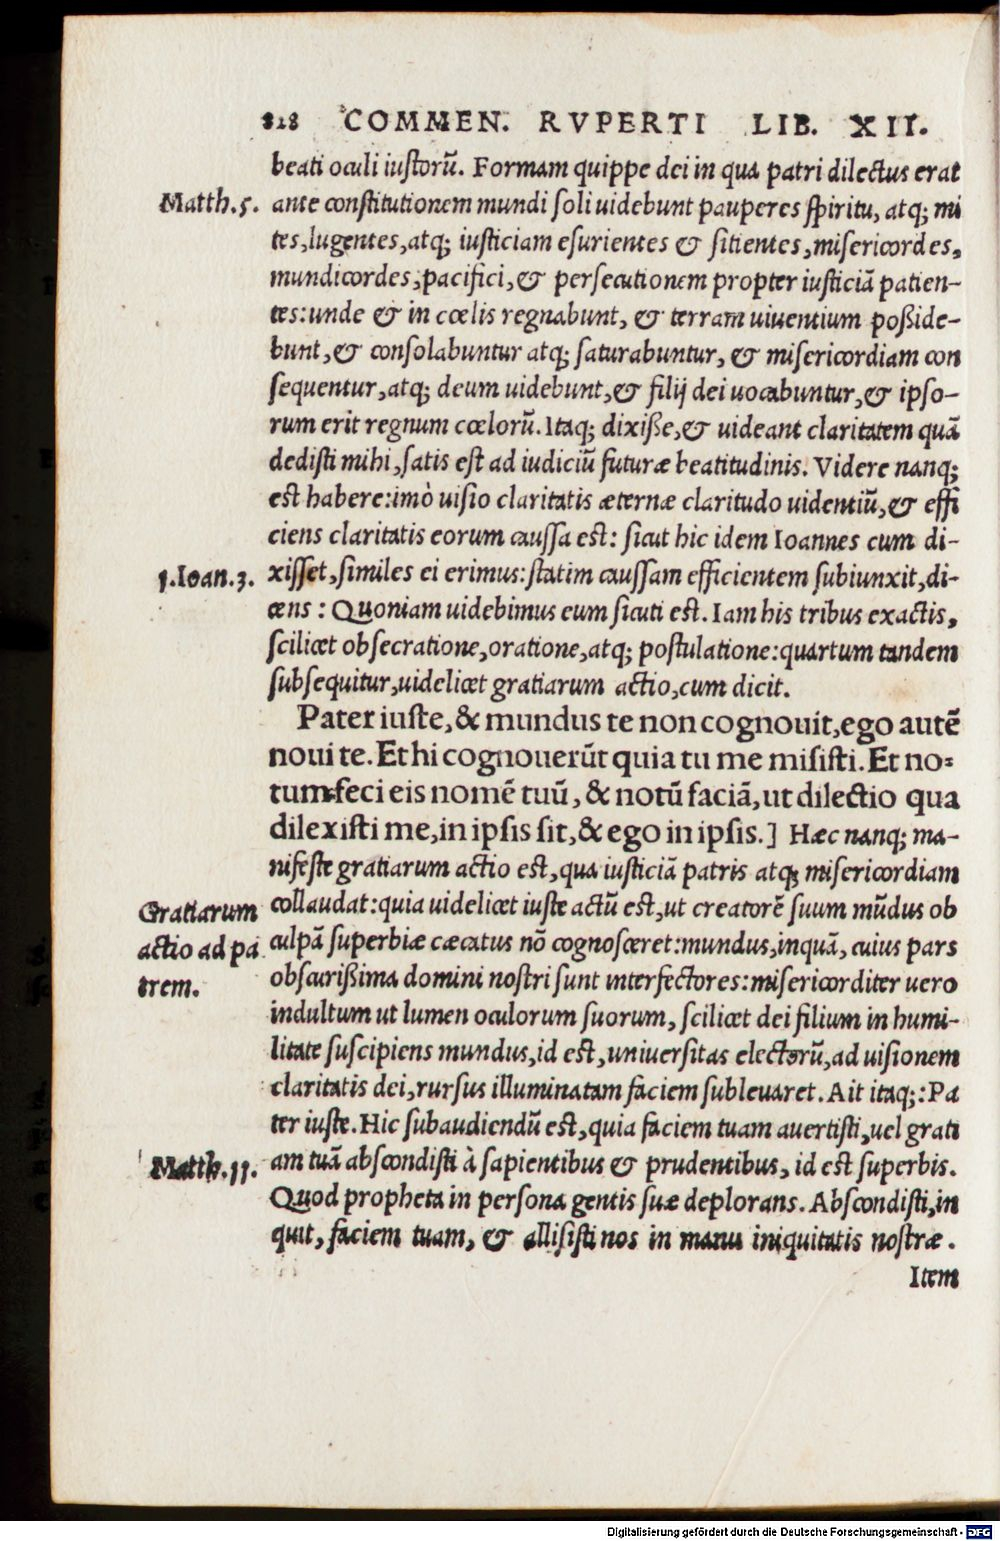 828 COMMEN. RVPERTI LIB. XII.
beati oculi iustorū. Formam quippe dei in qua patri dilectus erat
Matth.5. ante constitutionem mundi soli uidebunt pauperes spiritu, atq; mi
tes, lugentes, atq; iusticiam esurientes & sitientes, misericordes,
mundicordes, pacifici, & persecutionem propter iusticiā patien-
tes: unde & in cœlis regnabunt, & terram uiuentium poßide-
bunt, & consolabuntur atq; saturabuntur, & misericordiam con
sequentur, atq; deum uidebunt, & filij dei uocabuntur, & ipso-
rum erit regnum cœlorū. Itaq; dixiße, & uideant claritatem quā
dedisti mihi, satis est ad iudiciū futuræ beatitudinis. Videre nanq;
est habere: imò uisio claritatis æternæ claritudo uidentiū, & effi
ciens claritatis eorum caussa est: sicut hic idem Ioannes cum di-
1.Ioan.3. xisset, similes ei erimus: statim caussam efficientem subiunxit, di-
cens: Quoniam uidebimus eum sicuti est. Iam his tribus exactis,
scilicet obsecratione, oratione, atq; postulatione: quartum tandem
subsequitur, uidelicet gratiarum actio, cum dicit.
Pater iuste, & mundus te non cognouit, ego autē
noui te. Et hi cognouerūt quia tu me misisti. Et no-
tum feci eis nomē tuū, & notū faciā, ut dilectio qua
dilexisti me, in ipsis sit, & ego in ipsis.] Hæc nanq; ma-
nifeste gratiarum actio est, qua iusticiā patris atq; misericordiam
Gratiarum collaudat: quia uidelicet iuste actū est, ut creatorē suum mūdus ob
actio ad pa culpā superbiæ cæcatus nō cognosceret: mundus, inquā, cuius pars
trem. obscurißima domini nostri sunt interfectores: misericorditer uero
indultum ut lumen oculorum suorum, scilicet dei filium in humi-
litate suscipiens mundus, id est, uniuersitas electorū, ad uisionem
claritatis dei, rursus illuminatam faciem subleuaret. Ait itaq;: Pa
ter iuste. Hic subaudiendū est, quia faciem tuam auertisti, uel grati
Matth.11. am tuā abscondisti à sapientibus & prudentibus, id est superbis.
Quod propheta in persona gentis suæ deplorans. Abscondisti, in
quit, faciem tuam, & allisisti nos in manu iniquitatis nostræ.
Item
Digitalisierung gefördert durch die Deutsche Forschungsgemeinschaft - DFG